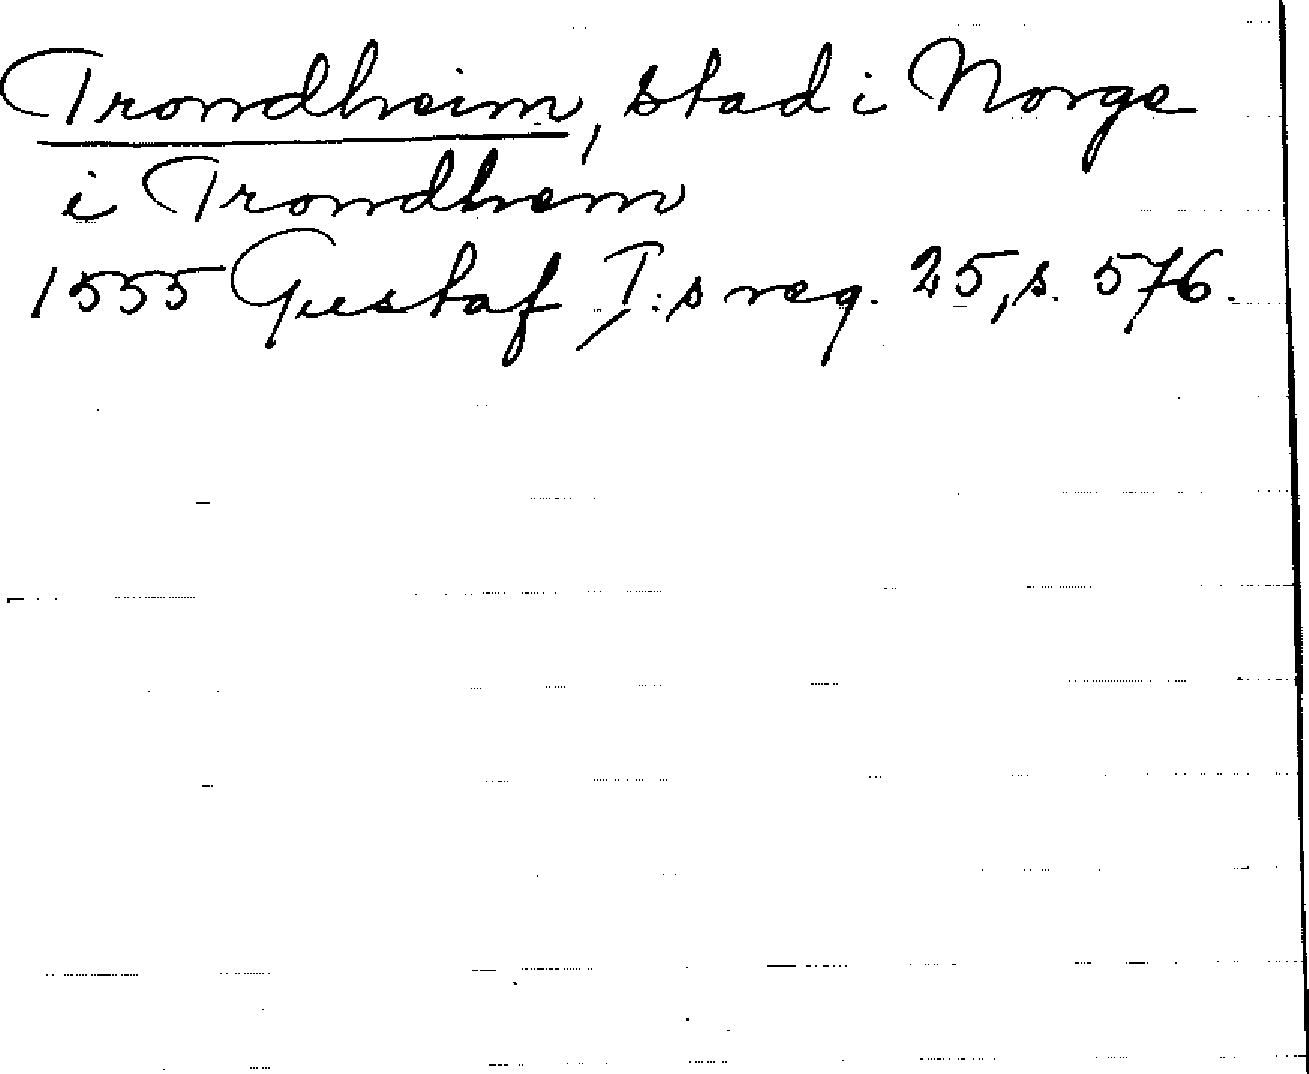 Trondheim, stad i Norge
i Trondhem
1555 Gustaf I:s reg. 25, s. 576.